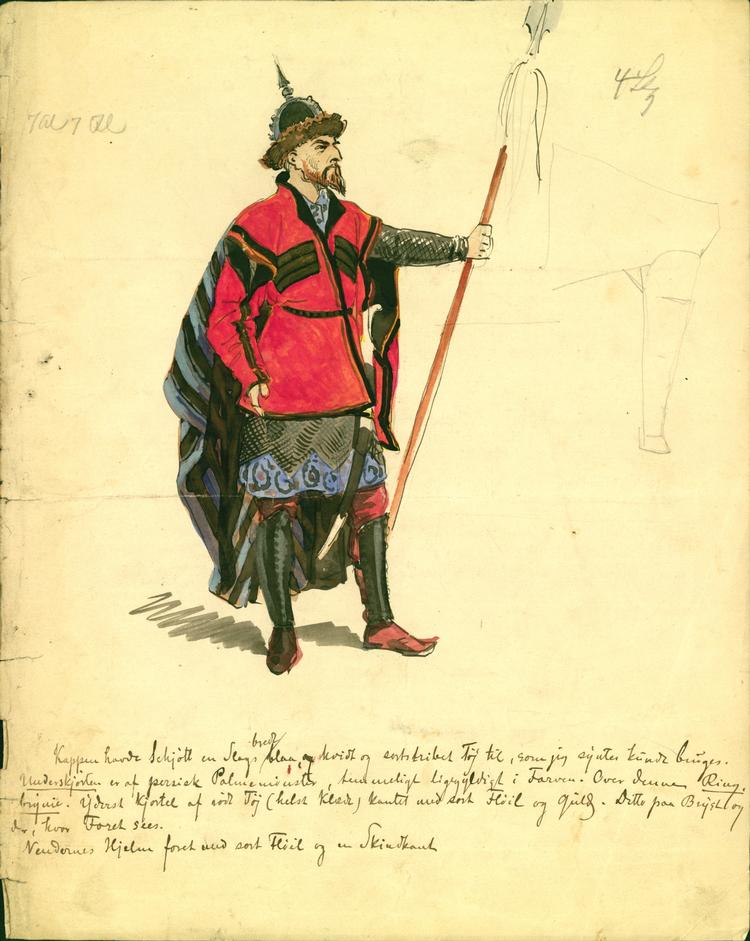 4
Kappen havde Schjött en Slags bredt blaa, og hvidt og sortstribet Töj til, som jeg synter kunde bruges.
Underskjorten er af persisk Palmemönster, temmelig ligegyldigt i Farven. Over denne Ring-
brynie. Yderst Kjortel af rödt Töj (helst Klæde) kantet med sort Flöil og Guld. Ditto paa Bryst og
der, hvor Foret sees.
Hjelm foret med sort Flöil og en Skindkant